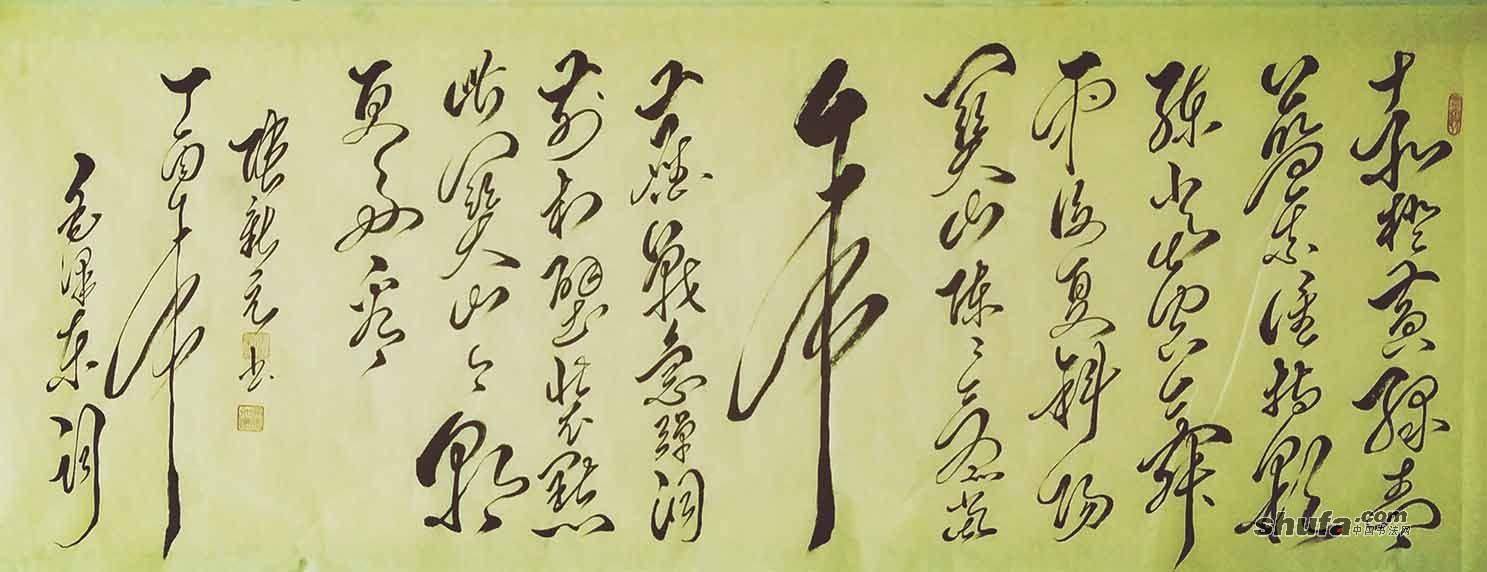 赤橙黄绿青
蓝紫谁持彩
练当空舞
雨後复斜阳
关山阵阵苍当
年
鏖战急弹洞
前村壁装点
此关山今朝
更好看
新元书
丁酉年
毛泽东词
shufa.com
中国书法网